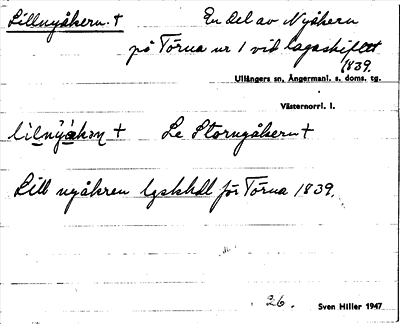 Lillnyåkern. † En del av Nyåkern
på Törna nr 1 vid lagaskiftet
1839.
Ullångers sn, Ångermanl. s. doms. tg.
Västernorrl. l.
† Se Stornyåkern †
Lill nyåkren lgskhdl för Törna 1839.
26. Sven Hiller 1947